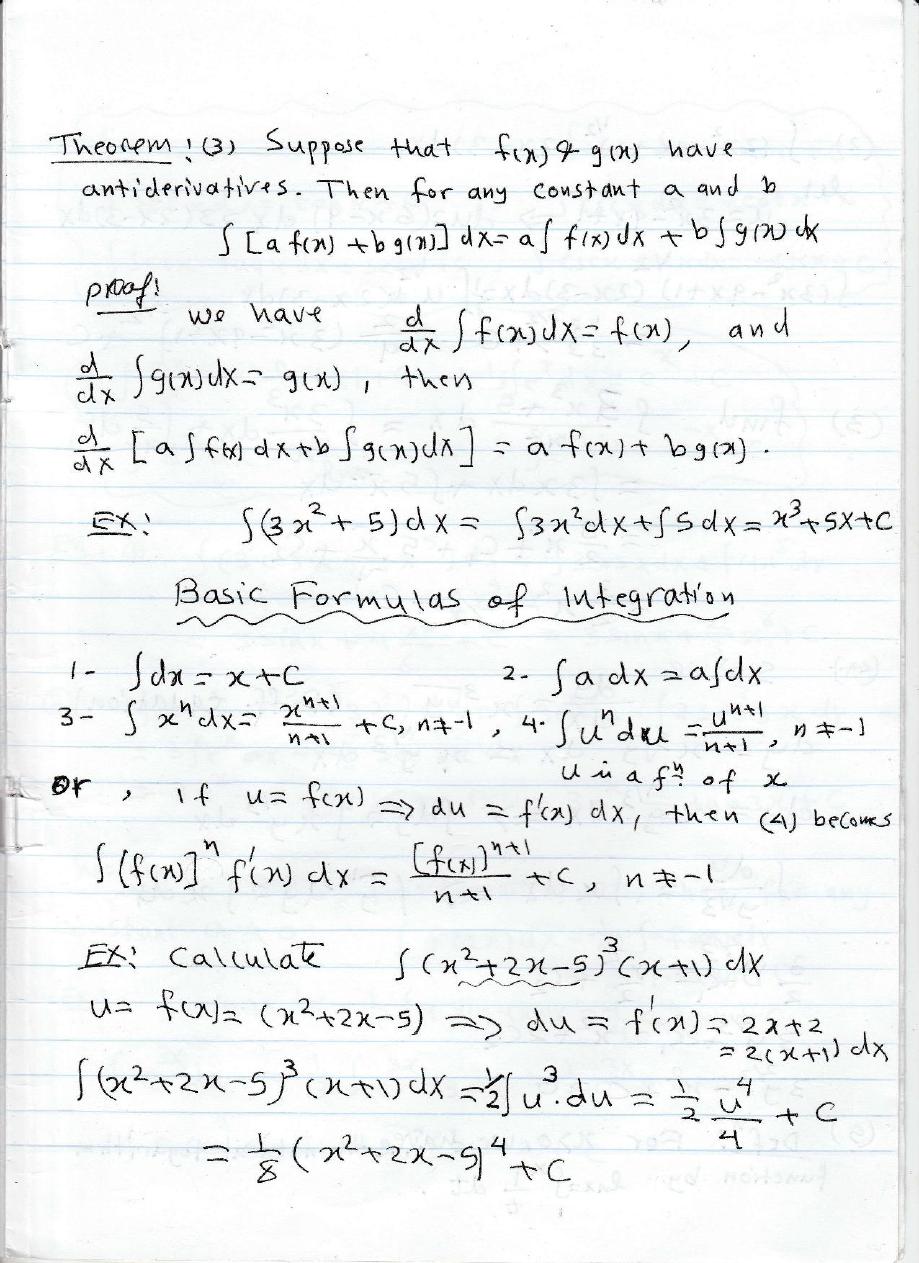 Theorem : (3) Suppose that f(x) & g(x) have
antiderivatives. Then for any constant a and b
∫ [a f(x) + b g(x)] dx = a ∫ f(x) dx + b ∫ g(x) dx
proof:
we have d/dx ∫ f(x) dx = f(x), and
d/dx ∫ g(x) dx = g(x), then
d/dx [a ∫ f(x) dx + b ∫ g(x) dx] = a f(x) + b g(x).
EX: ∫(3x² + 5) dx = ∫3x² dx + ∫5 dx = x³ + 5x + C
Basic Formulas of Integration
1- ∫dx = x + C 2- ∫a dx = a∫dx
3- ∫ xⁿ dx = xⁿ⁺¹/n+1 + C, n ≠ -1, 4. ∫ uⁿ du = uⁿ⁺¹/n+1, n ≠ -1
u is a fⁿ of x
or, if u = f(x) ⇒ du = f'(x) dx, then (4) becomes
∫ (f(x)]ⁿ f'(x) dx = [f(x)]ⁿ⁺¹/n+1 + C, n ≠ -1
EX: Calculate ∫ (x² + 2x - 5)³ (x + 1) dx
u = f(x) = (x² + 2x - 5) ⇒ du = f'(x) = 2x + 2
= 2(x + 1) dx
∫ (x² + 2x - 5)³ (x + 1) dx = 1/2 ∫ u³. du = 1/2 u⁴/4 + C
= 1/8 (x² + 2x - 5)⁴ + C